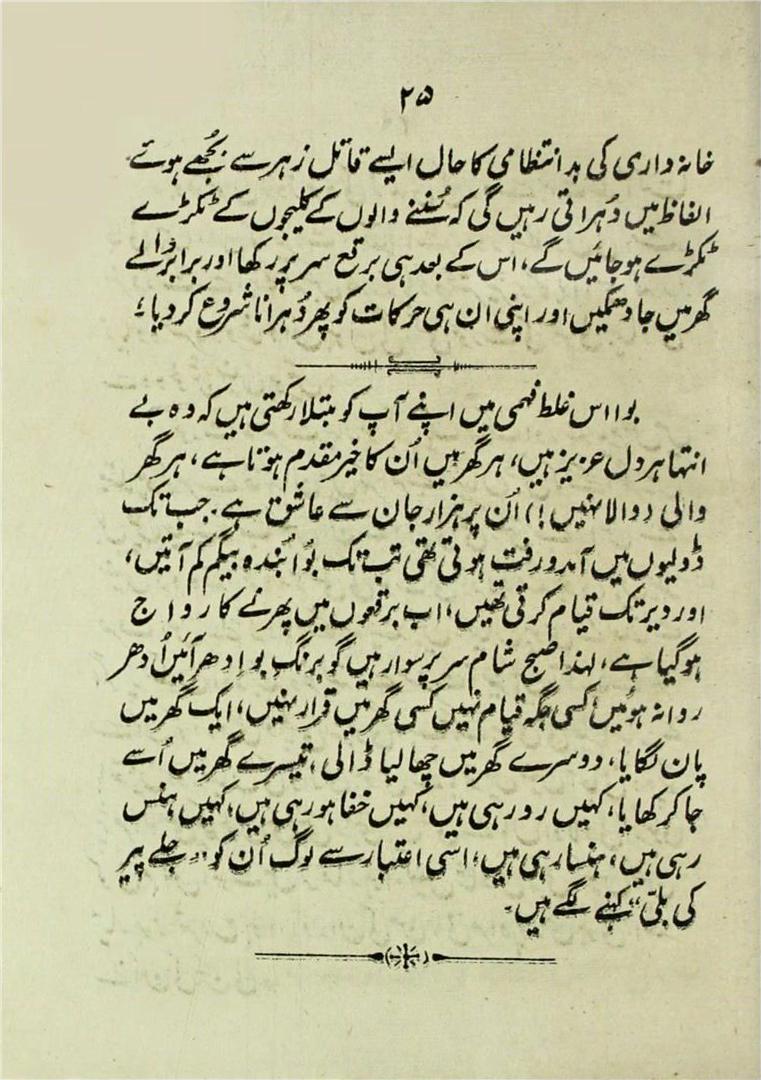 ۲۵
خانہ داری کی بد انتظامی کا حال ایسے قاتل زہر سے بُجھے ہوئے
الفاظ میں دُہراتی رہیں گی کہ سُننے والوں کے کلیجوں کے ٹکڑے
ٹکڑے ہوجائیں گے، اس کے بعد ہی برقع سر پر رکھا اور برابر والے
گھر میں جا دھمکیں اور اپنی ان ہی حرکات کو پھر دُہرانا شروع کر دیا؛
بوا اس غلط فہمی میں اپنے آپ کو مبتلا رکھتی ہیں کہ وہ بے
انتہا ہر دل عزیز ہیں، ہر گھر میں اُن کا خیر مقدم ہوتا ہے، ہر گھر
والی (والا نہیں!) اُن پر ہزار جان سے عاشق ہے۔ جب تک
ڈولیوں میں آمد و رفت ہوتی تھی تب تک بُوا بُندہ بیگم کم آتیں،
اور دیر تک قیام کرتی تھیں، اب برقعوں میں پھرنے کا رواج
ہوگیا ہے، لہذا صبح شام سر پر سوار ہیں گو برنگِ بو اِدھر آئیں اُدھر
روانہ ہوئیں کسی جگہ قیام نہیں کسی گھر میں قرار نہیں، ایک گھر میں
پان لگایا، دوسرے گھر میں چھالیا ڈالی، تیسرے گھر میں اُسے
جا کر کھایا، کہیں رو رہی ہیں، کہیں خفا ہو رہی ہیں، کہیں ہنس
رہی ہیں، ہنسا رہی ہیں، اسی اعتبار سے لوگ اُن کو "جلے پیر
کی بلّی" کہنے لگے ہیں۔